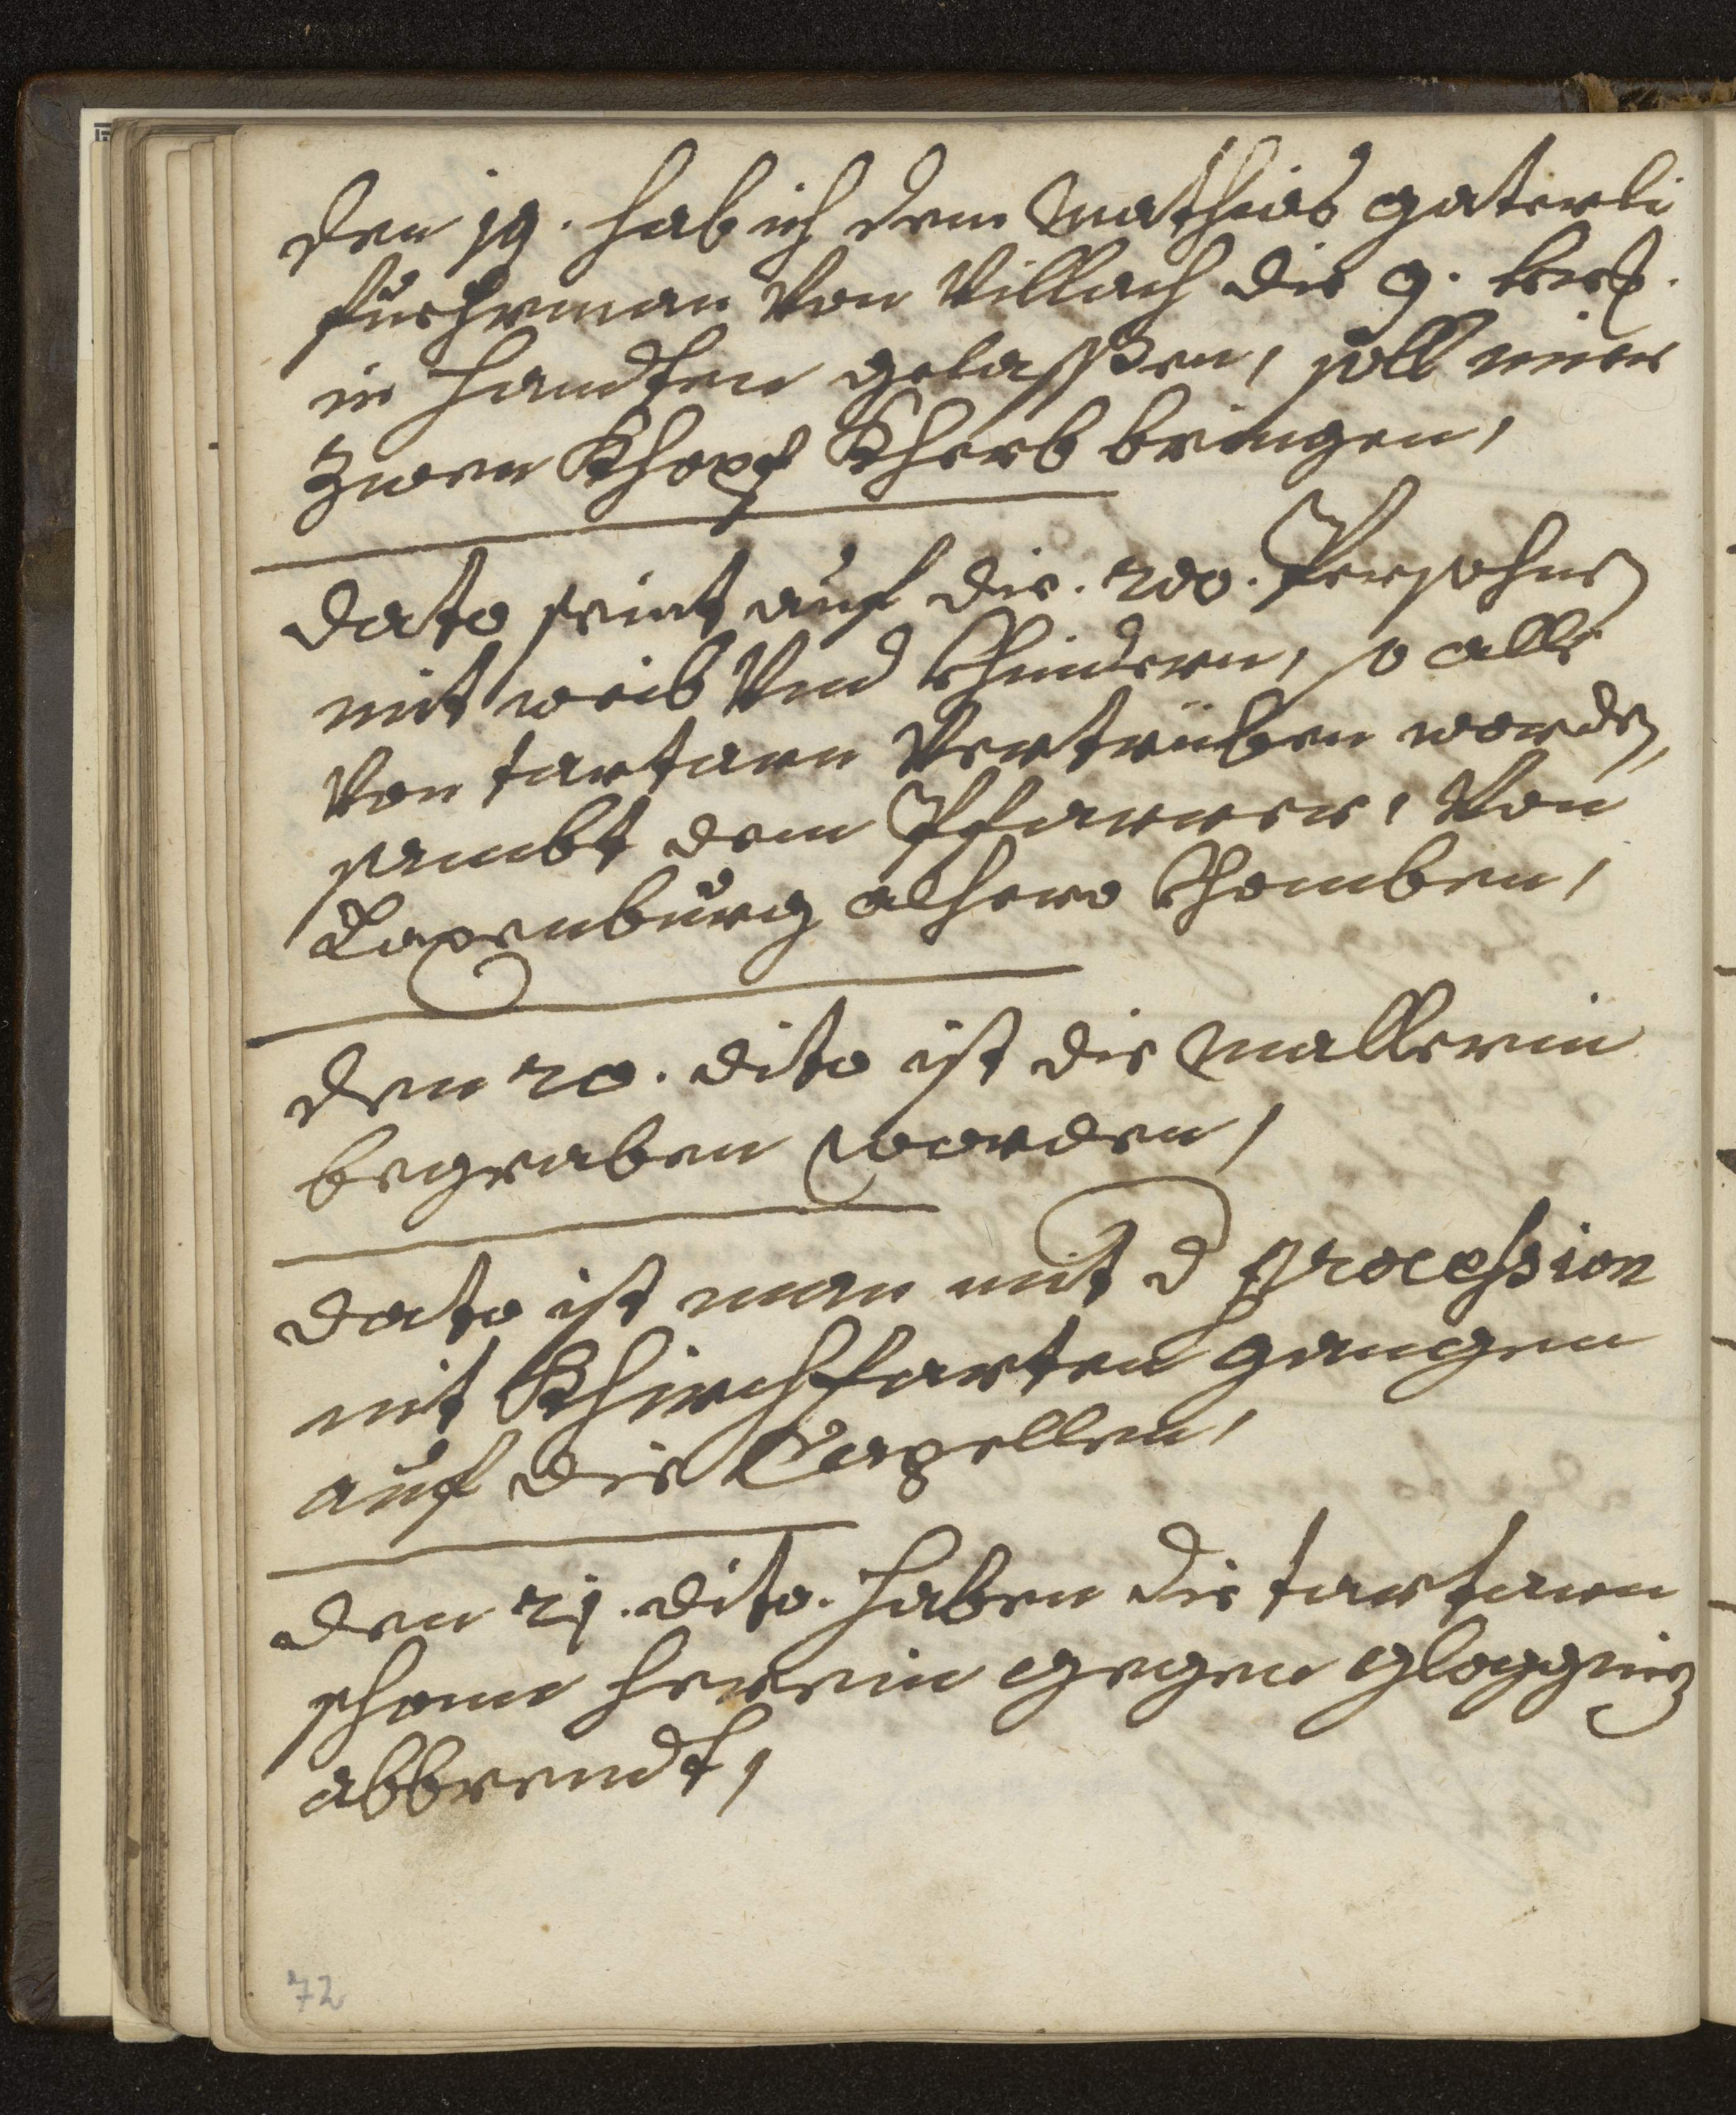 den 19. hab ich dem Mathias gaterli
fuehrman Von Villach die 9. 
in handten gelassßen, soll mier
Zwen Khopf Kherb bringen,
dato seint auf die. 200. Persohnen
mit weib Vnd Khindern, so alle
Von tartarn Vertrüben worden,
sambt dem Pfarrer, Von
Laxenburg alhero Khomben,
den 20. dito ist die Mallerin
begraben worden,
dato ist man mit d procession
mit Khirchfarten gangen
auf die Capellen,
den 21. dito. haben die tartarn
schonn herein gegen gloggniz
abbrendt,
72